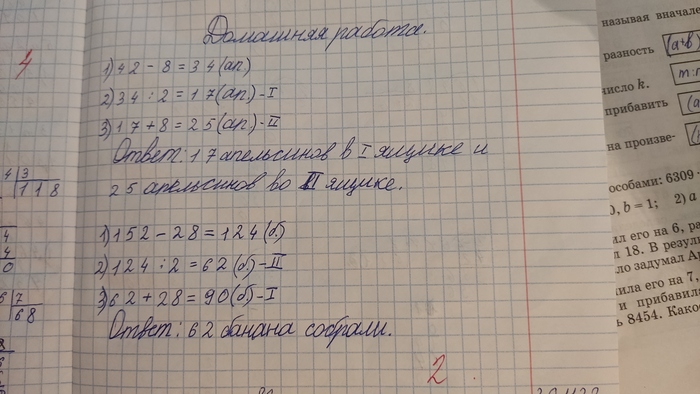 Домашняя работа.
1) 42 - 8 = 34 (ап)
2) 34 : 2 = 17 (ап) - I
3) 17 + 8 = 25 (ап) - II
Ответ: 17 апельсинов в I ящике и
25 апельсинов во II ящике.
1) 152 - 28 = 124 (б)
2) 124 : 2 = 62 (б) - II
3) 62 + 28 = 90 (б) - I
Ответ: 62 банана собрали.
2
4
4 3
118
4
4
0
7
68
называя вначале
разность (a+b)
число k. m:n
прибавить (a
на произве-
особами: 6309
b = 1; 2) a
ил его на 6, ра
л 18. В резул
ло задумал Ар
ила его на 7,
и прибавила
ь 8454. Како